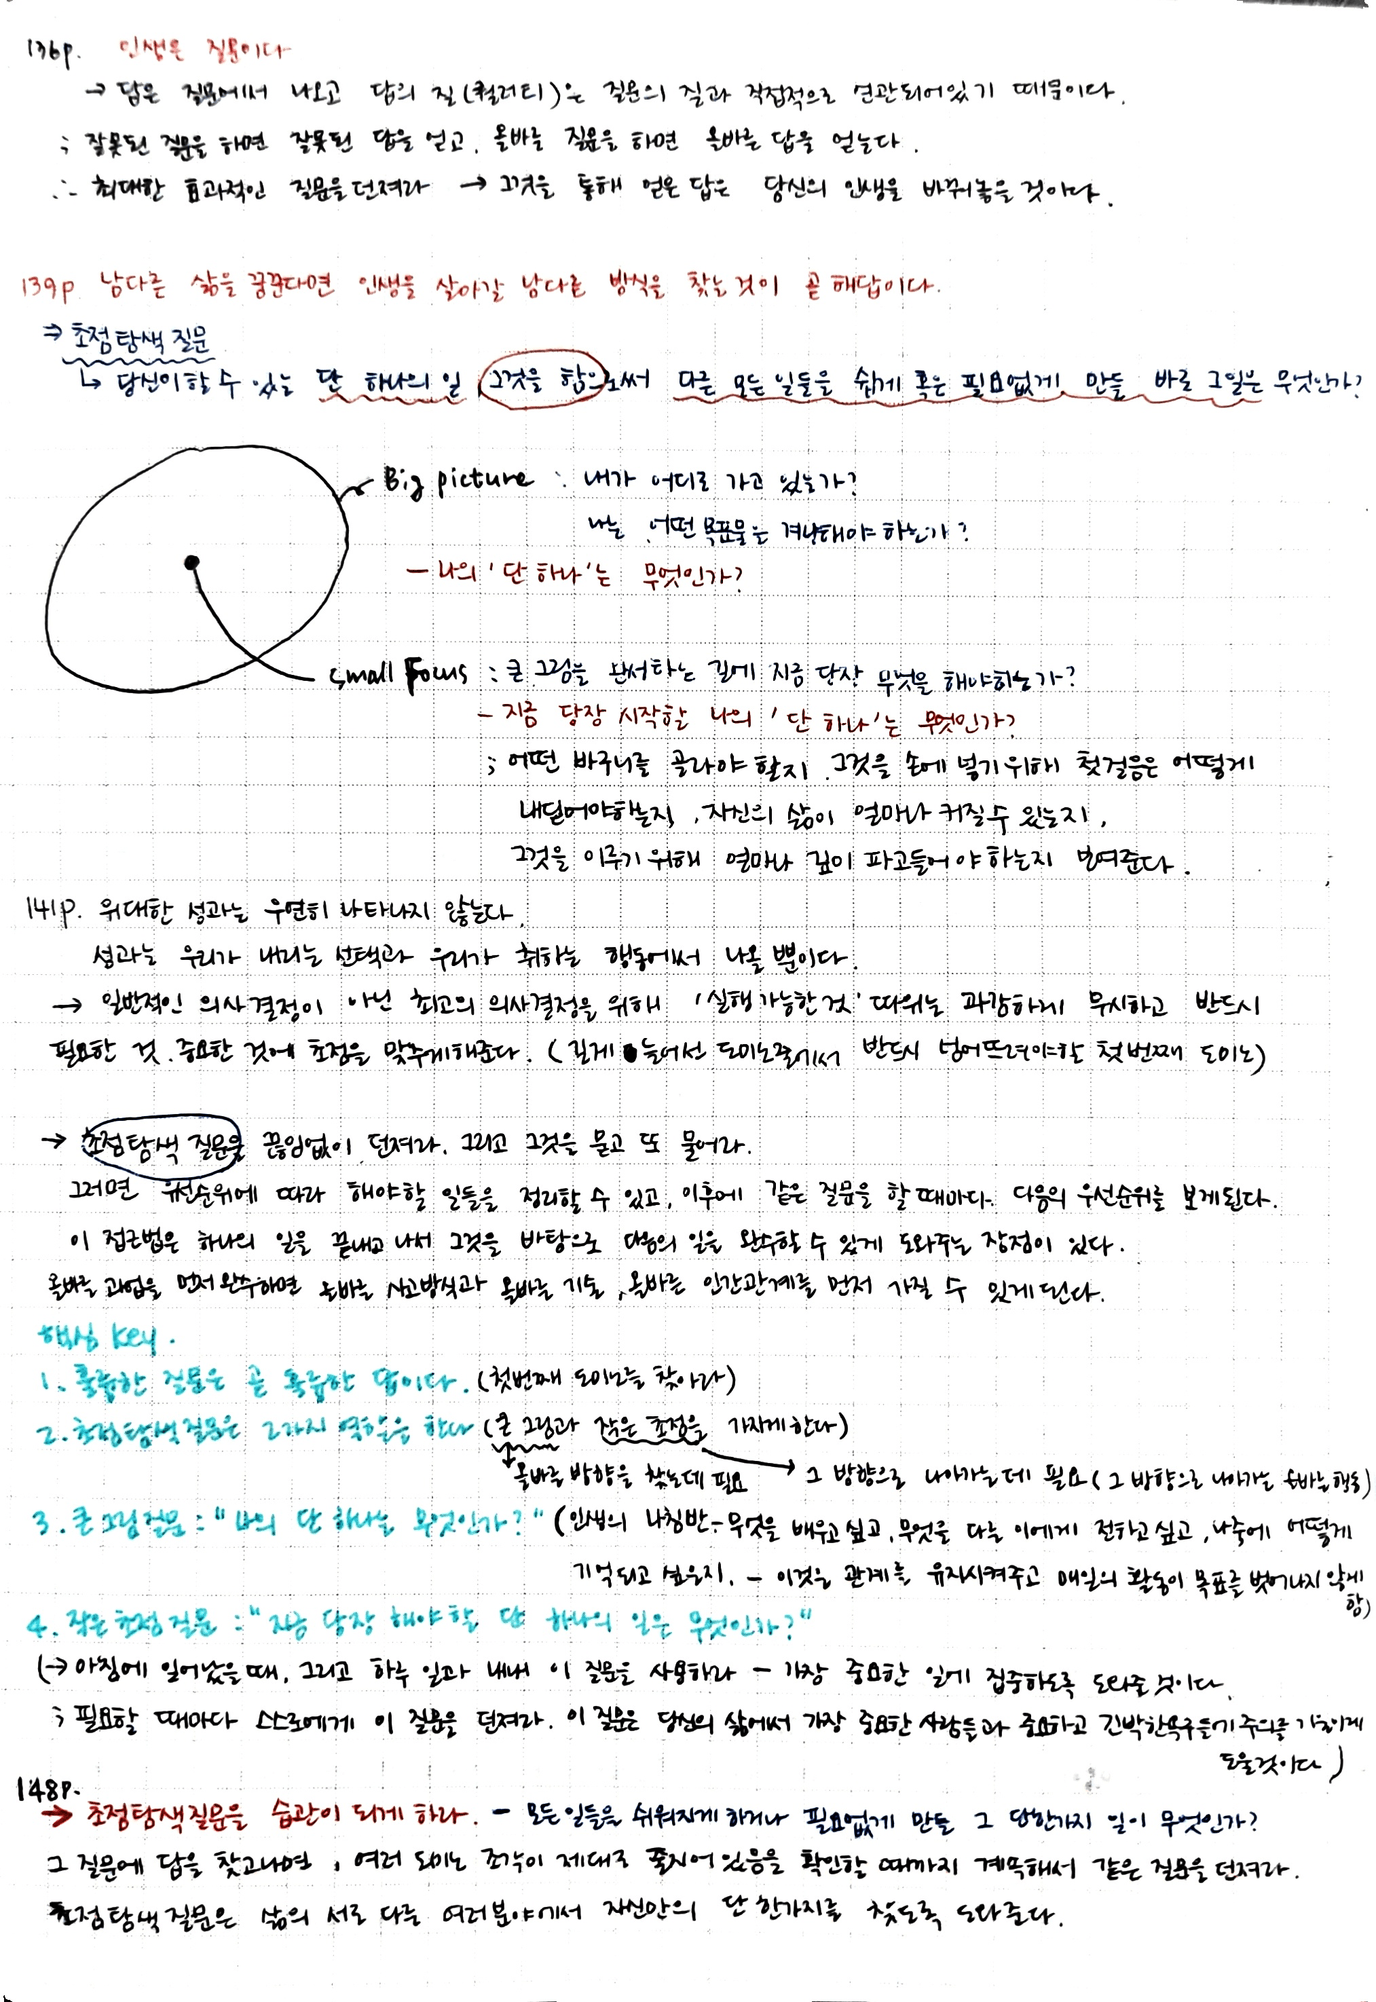 136p. 인생은 질문이다
→ 답은 질문에서 나오고 답의 질(퀄러티)은 질문의 질과 직접적으로 연관되어있기 때문이다.
; 잘못된 질문을 하면 잘못된 답을 얻고, 올바른 질문을 하면 올바른 답을 얻는다.
∴ 최대한 효과적인 질문을 던져라 → 그것을 통해 얻은 답은 당신의 인생을 바꿔놓을 것이다.
139p 남다른 삶을 꿈꾼다면 인생을 살아갈 남다른 방식을 찾는것이 곧 해답이다.
⇒ 초점탐색 질문
↳ 당신이 할 수 있는 단 하나의 일, 그것을 함으로써 다른 모든 일들을 쉽게 혹은 필요없게 만들 바로 그일은 무엇인가?
Big picture : 내가 어디로 가고 있는가?
나는 어떤 목표물을 겨냥해야 하는가?
- 나의 '단 하나'는 무엇인가?
small Focus : 큰 그림을 완성하는 길에 지금 당장 무엇을 해야하는가?
- 지금 당장 시작할 나의 '단 하나'는 무엇인가?
; 어떤 바구니를 골라야 할지, 그것을 손에 넣기 위해 첫걸음은 어떻게
내딛어야하는지, 자신의 삶이 얼마나 커질수 있는지,
그것을 이루기 위해 얼마나 깊이 파고들어야 하는지 보여준다.
141p. 위대한 성과는 우연히 나타나지 않는다.
성과는 우리가 내리는 선택과 우리가 취하는 행동에서 나올 뿐이다.
→ 일반적인 의사결정이 아닌 최고의 의사결정을 위해 '실행가능한 것' 따위는 과감하게 무시하고 반드시
필요한 것, 중요한 것에 초점을 맞추게해준다. (길게 늘어선 도미노줄에서 반드시 넘어뜨려야할 첫번째 도미노)
→ 초점탐색 질문을 끊임없이 던져라. 그리고 그것을 묻고 또 물어라.
그러면 우선순위에 따라 해야할 일들을 정리할 수 있고, 이후에 같은 질문을 할 때마다 다음의 우선순위를 보게된다.
이 접근법은 하나의 일을 끝내고 나서 그것을 바탕으로 다음의 일을 완수할 수 있게 도와주는 장점이 있다.
올바른 과업을 먼저 완수하면 올바른 사고방식과 올바른 기술, 올바른 인간관계를 먼저 가질 수 있게 된다.
핵심 key.
1. 훌륭한 질문은 곧 훌륭한 답이다. (첫번째 도미노를 찾아라)
2. 초점탐색질문은 2가지 역할을 한다 (큰 그림과 작은 초점을 가지게한다)
올바른 방향을 찾는데 필요 → 그 방향으로 나아가는데 필요 (그 방향으로 나아가는 올바른 행동)
3. 큰 그림 질문 : "나의 단 하나는 무엇인가?" (인생의 나침반 - 무엇을 배우고 싶고, 무엇을 다른 이에게 전하고 싶고, 나중에 어떻게
기억되고 싶은지. - 이것은 관계를 유지시켜주고 매일의 활동이 목표를 벗어나지 않게
함)
4. 작은 초점 질문 : "지금 당장 해야할 단 하나의 일은 무엇인가?"
(→ 아침에 일어났을때, 그리고 하루 일과 내내 이 질문을 사용하라 - 가장 중요한 일에 집중하도록 도와줄 것이다.
; 필요할 때마다 스스로에게 이 질문을 던져라. 이 질문은 당신의 삶에서 가장 중요한 사람들과 중요하고 긴박한욕구들에 주의를 기울이게
도울것이다)
148p.
→ 초점탐색질문을 습관이 되게 하라. - 모든일들을 쉬워지게 하거나 필요없게 만들 그 단한가지 일이 무엇인가?
그 질문에 답을 찾고나면, 여러 도미노 조각이 제대로 줄지어 있음을 확인할 때까지 계속해서 같은 질문을 던져라.
초점탐색질문은 삶의 서로 다른 여러분야에서 자신만의 단 한가지를 찾도록 도와준다.